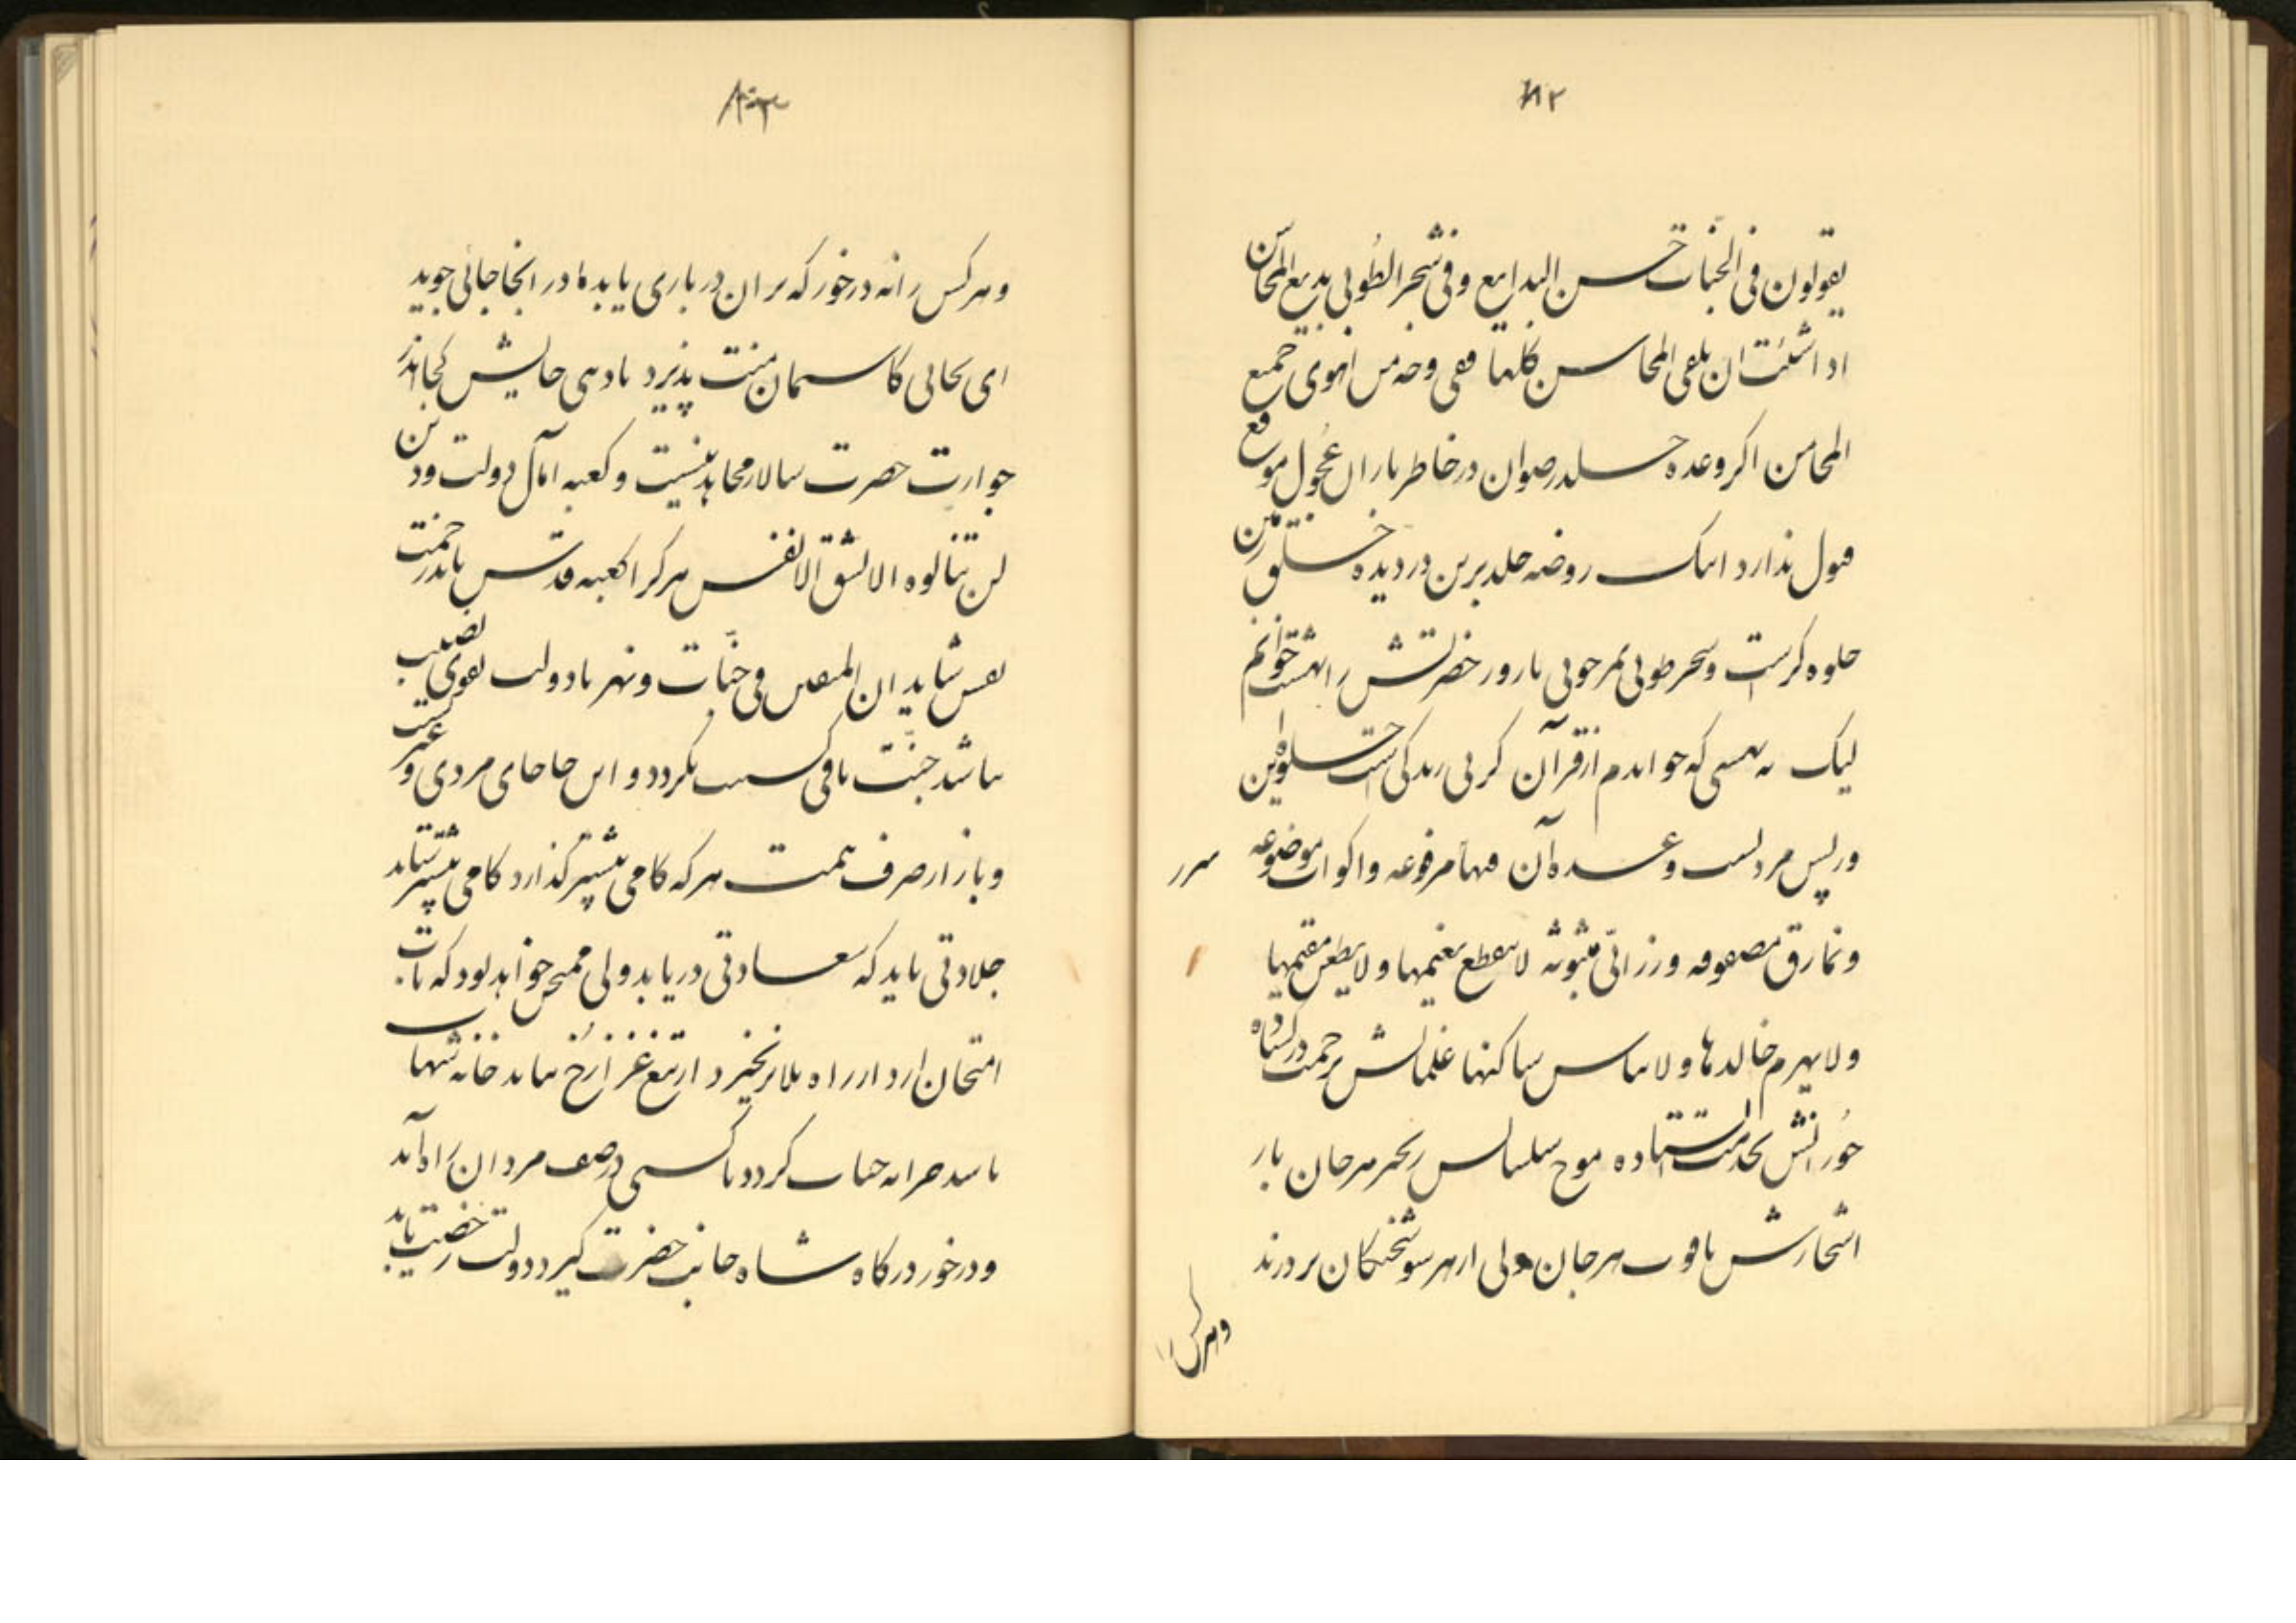 ۸۲
یقولون فی الجنات حسن البدایع وفی شجر الطُوبی بدیع المحاسن
اذا شئت ان تلقی المحاسن کلها ففی وجه من تهوی جمیع
المحاسن اکر وعده خلد رضوان در خاطر یاران عجول موقع
قبول ندارد اینک روضه خلد برین در دیده خلق زمین
جلوه کر است وشجر طوبی بر جوی بارور حضرتش را بهشت خوانم
لیک نه بهشتی که خواندم از قرآن کر پی زندکی است جلوه این
در پس مردنست وعده آن فیها سرر مرفوعه واکواب موضوعه
ونمارق مصفوفه وزرابّی مبثوثه لا ینقطع نعیمها ولا یظعن مقیمها
ولا یهرم خالدها ولا یباس ساکنها غلمانش برحمت در کشاده
حُورانش بخدمت ایستاده موج سلسالس بحر مرجان بار
اشجارش یاقوت مرجان ولی از هر سو شحنکان بر درند
وهرکس را
وهر کس را نه در خور که بر ان در باری یابد یا در انجا جائی جوید
ای بجائی کاسمان منت پذیرد تا دهی جایش کجا اندر
جوارت حضرت سالار مجاهدینست وکعبه آمال دولت ودین
لن تنالوه الا بشق الانفس هر کرا کعبه قدس باید رحمت
نفس شاید ان المتقین فی جنات ونهر تا دولت تقوی نصیب
نباشد جنت باقی کسب نکردد و این جا جای مردی و غیرتست
وباز از صرف همت هر که کامی پیشتر کذارد کامی بیشتر ستاند
جلادتی باید که سعادتی دریابد ولی ممتحن خواهد بود که تاب
امتحان ارد از راه بلا برنخیزد از تیغ غزا رخ نتابد خانه تنها
تا سد حرانه جناب کردد تا کسی در صف مردان راه آید
ودر خور درکاه شاه جانب حضرت کیرد دولت رخصت یابد